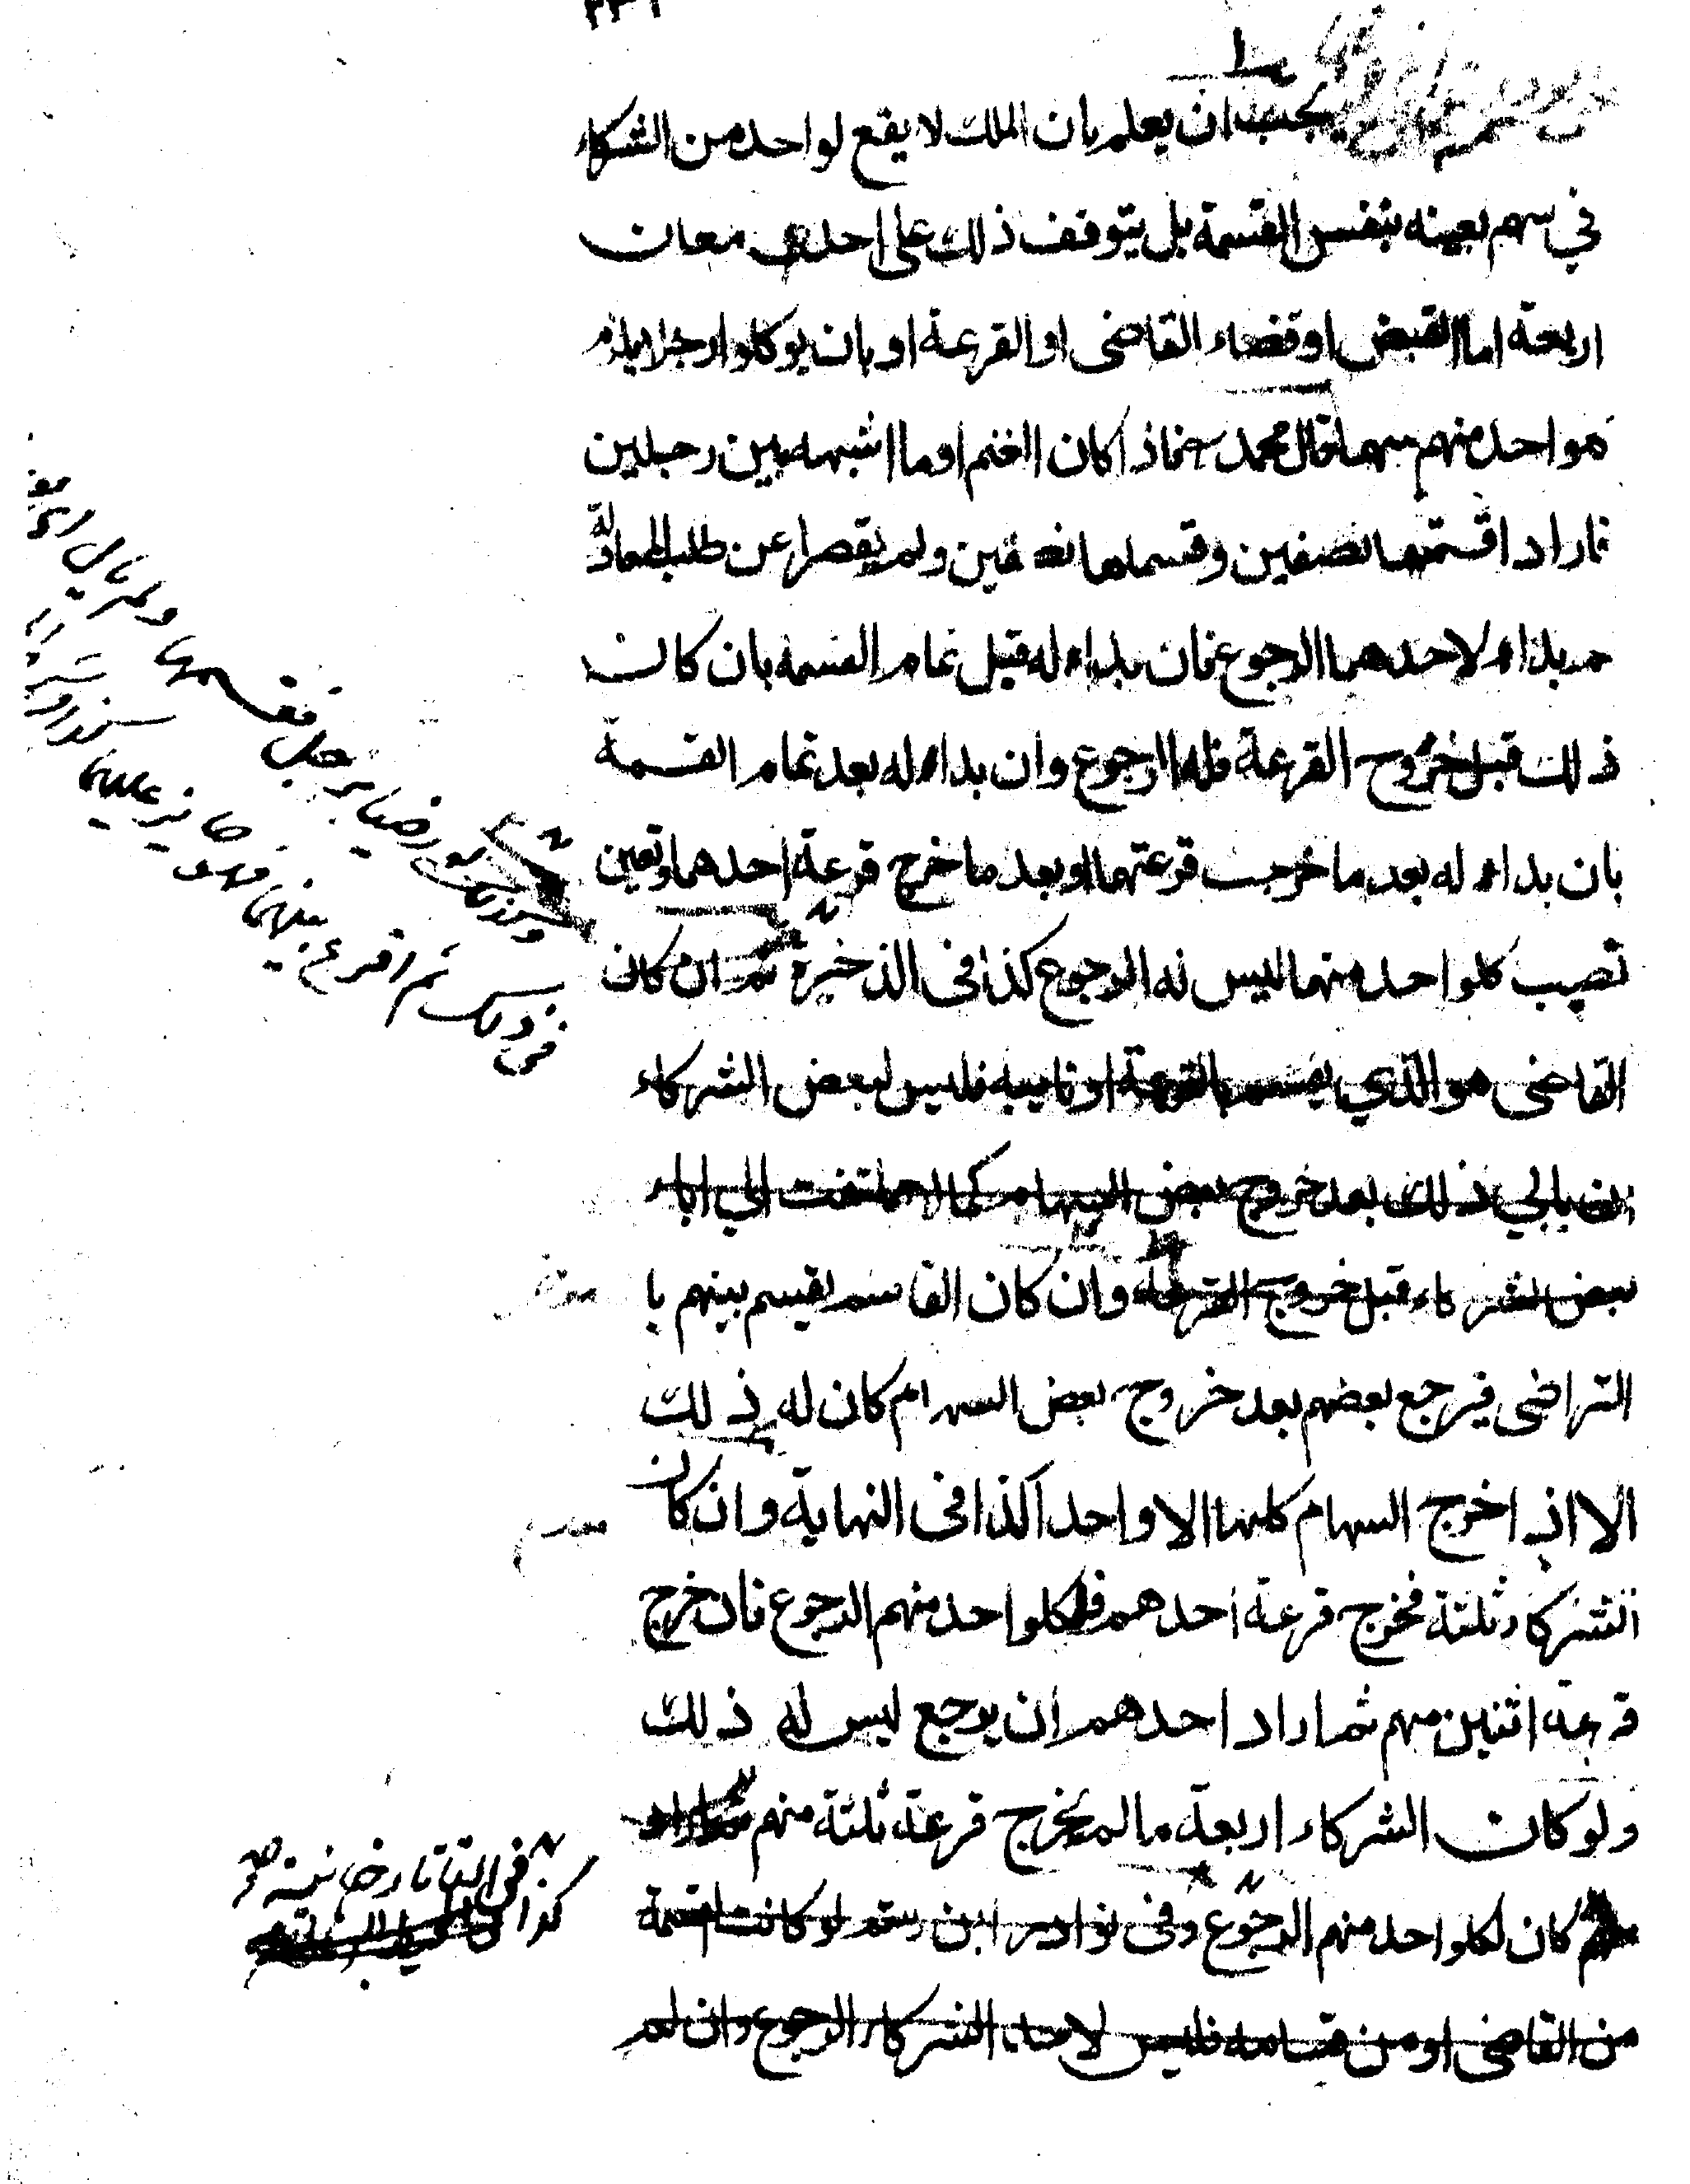 يجب ان يعلم بان الملك لا يقع لواحد من الشركاء
في سهم بعينه بنفس القسمة بل يتوقف ذلك على احدى معان
اربعة اما القبض او قضاء القاضى او القرعة او بان يوكلوا رجلا يلزم
كلواحد منهم سهما قال محمد رح فاذا كان الغنم او ما اشبهه بين رجلين
فاراد اقسمتها نصفين وقسماها نصفين ولم يقصرا عن طلب المعادلة
ثم بداء لاحدهما الرجوع فان بداء له قبل تمام القسمة بان كان
ذلك قبل خروج القرعة فله الرجوع وان بداء له بعد تمام القسمة
بان بداء له بعد ما خرجت قرعتهما او بعد ما خرج قرعة احدهما وتعين
نصيب كلواحد منهما ليس له الرجوع كذا فى الذخيرة ثم ان كان
القاضى هو الذي يقسم بالقرعة او نايبه فليس لبعض الشركاء
ان يابي ذلك بعد خروج بعض السهام كما لا يلتفت الي اباء
بعض الشركاء قبل خروج القرعة وان كان القاسم يقسم بينهم با
التراضى فيرجع بعضهم بعد خروج بعض السهام كان له ذلك
الا اذا خرج السهام كلها الا واحدا كذا فى النهاية وان كان
الشركاء ثلثة فخرج قرعة احدهم فلكلواحد منهم الرجوع فان خرج
قرعة اثنين منهم ثم اراد احدهم ان يرجع ليس له ذلك
ولو كان الشركاء اربعة ما لم يخرج قرعة ثلثة منهم
كان لكلواحد منهم الرجوع وفى نوادر ابن رستم لو كانت القسمة
من القاضى او من قسامه فليس لاحد الشركاء الرجوع وان لم
رضيا برجل فقسمها ولم يال
ثم اقرع بينهما فهو جايز عليهما
كذا فى التاتارخانية صح